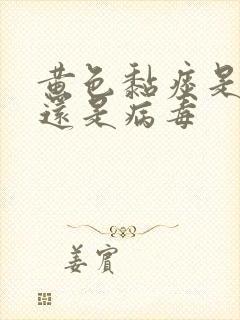 黄色黏痰是
還是病毒
姜賓